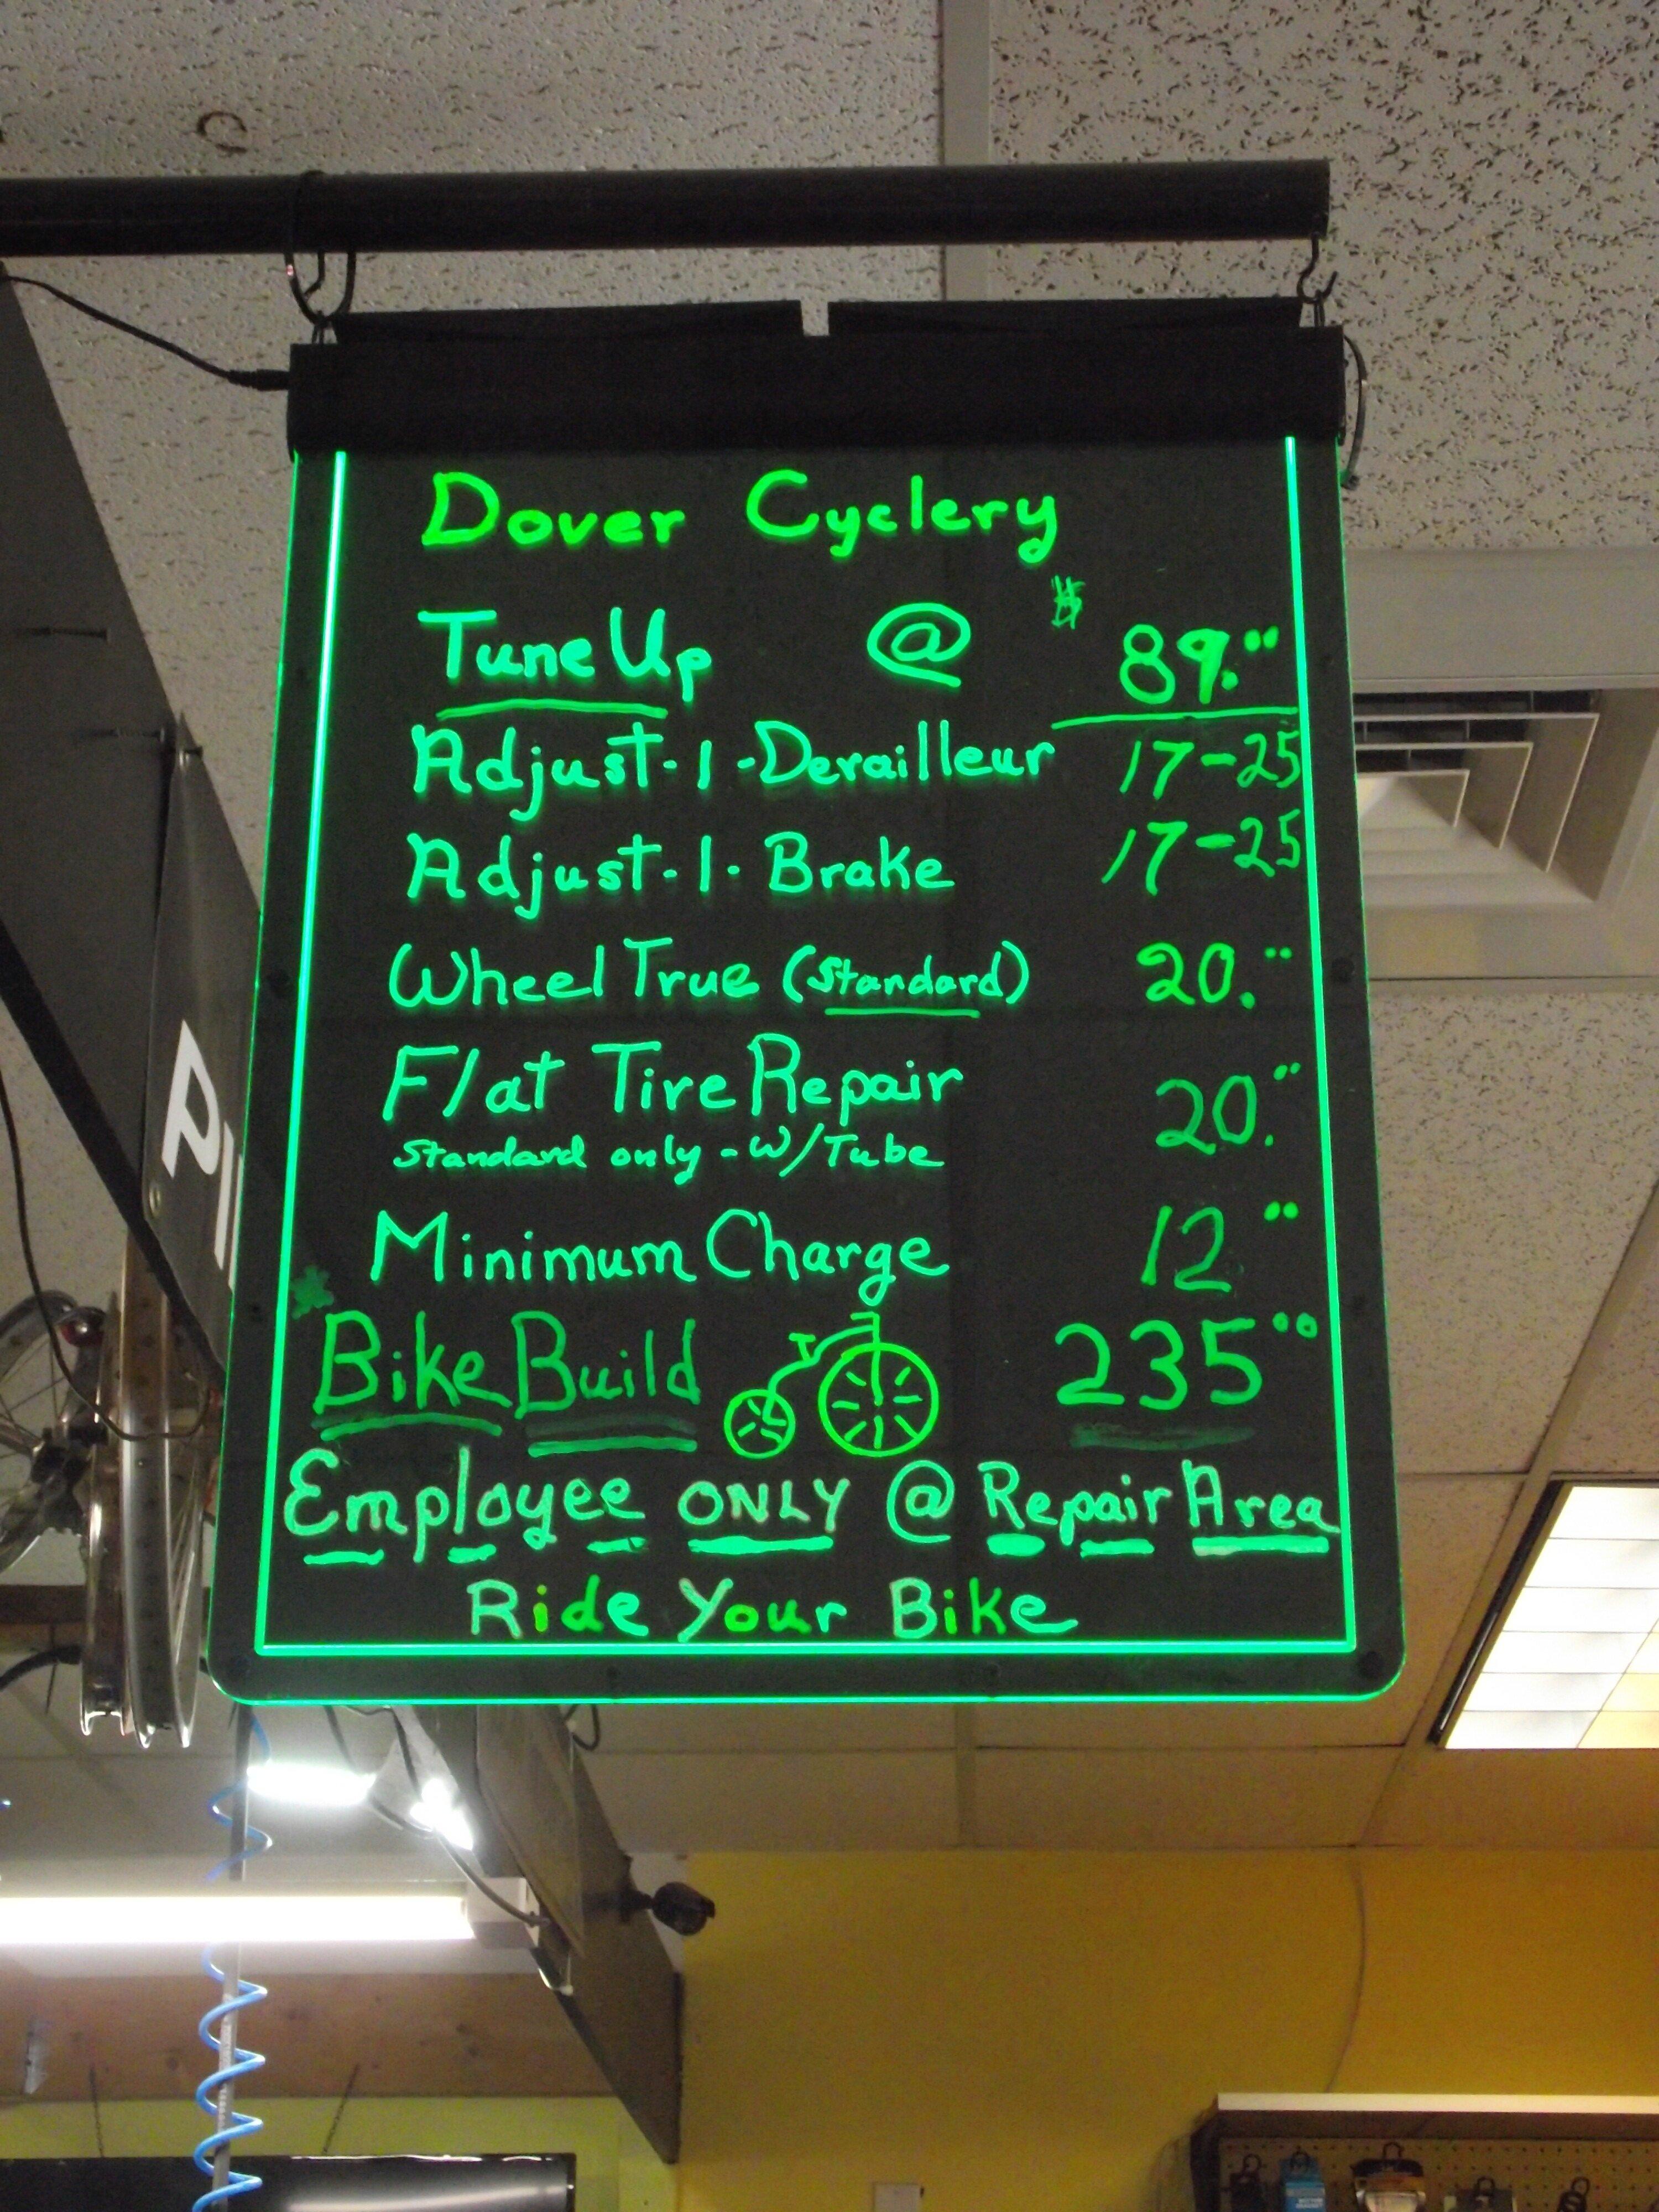 Dover Cyclery
Tune Up @ $ 89.00
Adjust-1-Derailleur 17-25
Adjust-1-Brake 17-25
Wheel True (Standard) 20.00
Flat Tire Repair 20.00
Standard only - w/Tube
Minimum Charge 12 00
Bike Build 235 00
Employee ONLY @ Repair Area
Ride Your Bike